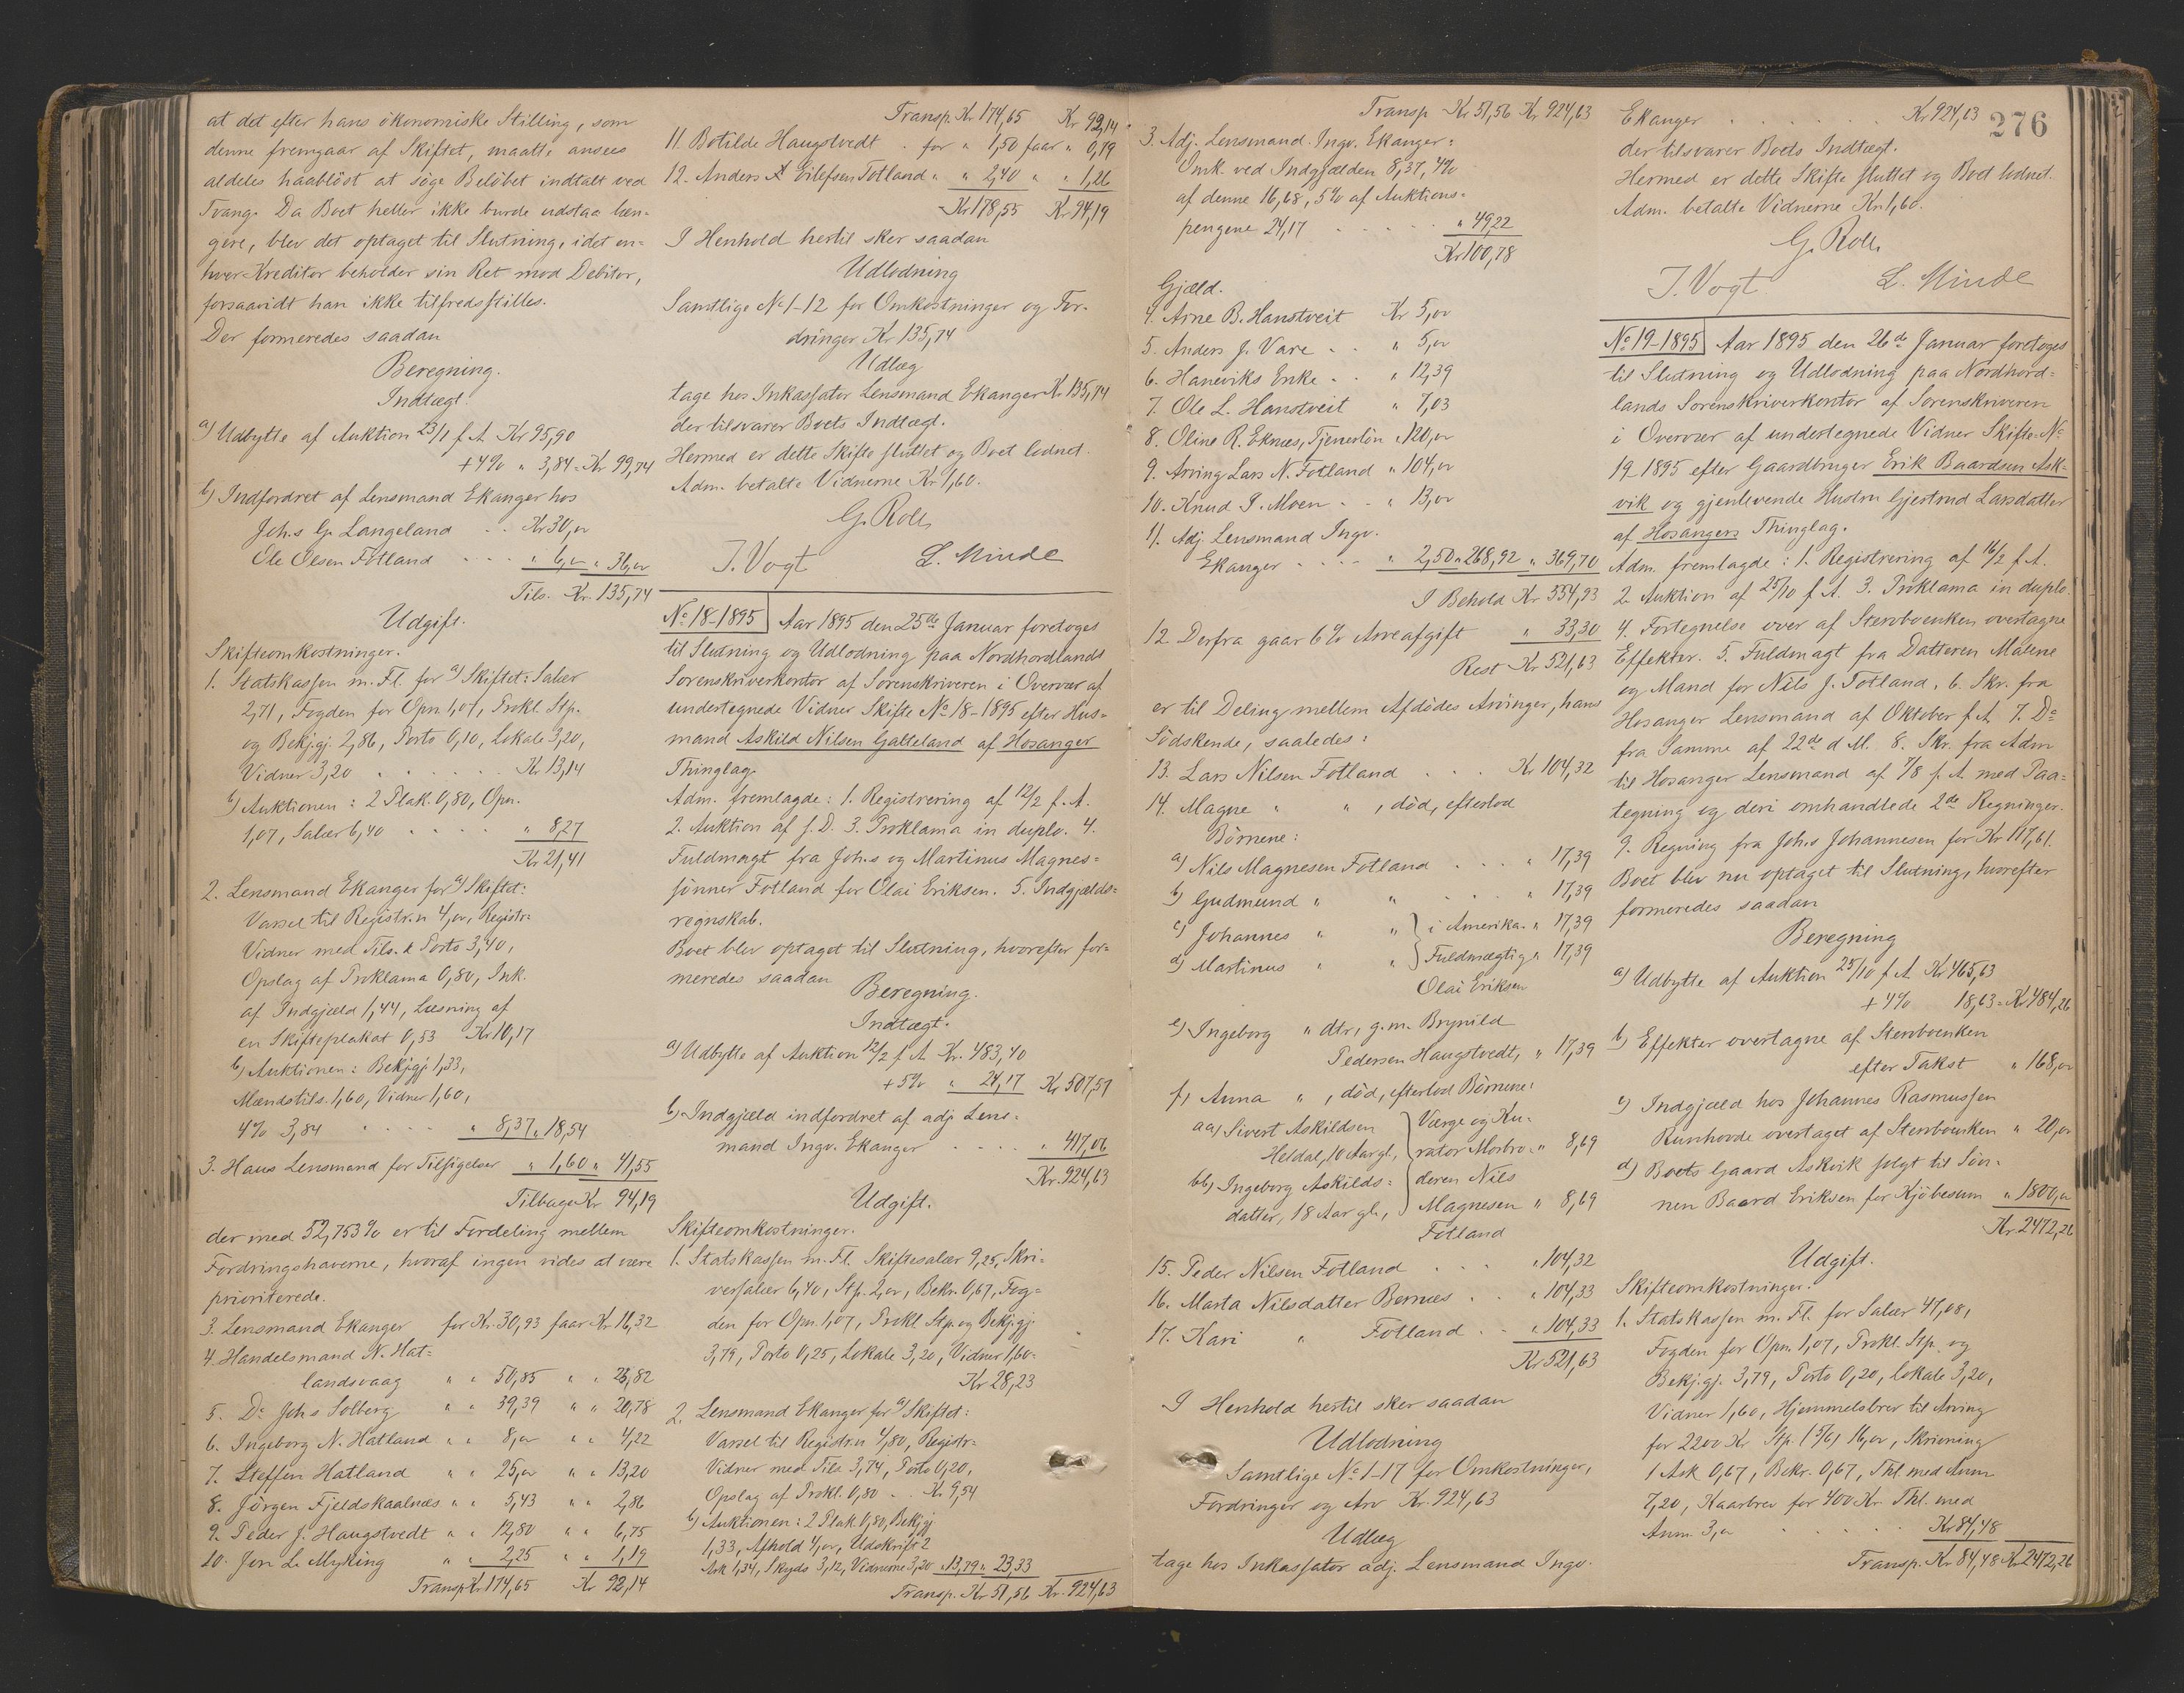 at det efter hans ökonomiske Stilling, som
denne fremgaar af Skiftet, maatte ansees
aldeles haablöst at söge Belöbet indtalt ved
Tvang. Da Boet heller ikke burde udstaa læn-
gere, blev det optaget til Slutning, idet en-
hver Kreditor beholder sin Ret mod Debitor,
forsaavidt han ikke tilfredsstilles.
Der formeredes saadan
Beregning.
Indtægt.
a) Udbytte af Auktion 23/1 f. A. Kr 95,90
+4% " 3,84 = Kr 99,74
b) Indfordret af Lensmand Ekanger hos
Johs G. Langeland . . Kr 30,00
Ole Olsen Fotland . . . " 6,00 " 36,00
Tils. Kr. 135,74
Udgift.
Skifteomkostninger.
1. Statskassen m. Fl. for a) Skiftet: Salær
2,71, Fogden for Opn. 1,07, Prokl. Stp.
og Bekjgj. 2,86, Porto 0,10, Lokale 3,20,
Vidner 3,20 . . . . . Kr 13,14
b) Auktionen: 2 Plak. 0,80, Opn.
1,07, Salær 6,40 . . . . " 8,27
Kr 21,41
2. Lensmand Ekanger for a) Skiftet:
Varsel til Registr.n 4,00, Registr=
Vidner med Tils. & Porto 3,40,
Opslag af Proklama 0,80, Ink.
af Indgjæld 1,44, Læsning af
en Skifteplakat 0,53 Kr 10,17
b) Auktionen: Bekjgj 1,33,
Mændstils. 1,60, Vidner 1,60,
4% 3,84 . . . . " 8,37 " 18,54
3. Haus Lensmand for Tilsigelser " 1,60 " 41,55
Tilbage Kr 94,19
der med 52,753% er til Fordeling mellem
Fordringshaverne, hvoraf ingen vides at være
prioriterede.
3. Lensmand Ekanger for Kr. 30,93 faar Kr 16,32
4. Handelsmand N. Hat=
landsvaag " " 50,85 " " 26,82
5. Do Johs Solberg " " 39,39 " " 20,78
6. Ingeborg N. Hatland " " 8,00 " " 4,22
7. Steffen Hatland " " 25,00 " " 13,20
8. Jörgen Fjeldskaalnæs " " 5,43 " " 2,86
9. Peder J. Haugstvedt " " 12,80 " " 6,75
10. Jon L. Myking " " 2,25 " " 1,19
Transp Kr 174,65 Kr 92,14
Transp. Kr 174,65 Kr 92,14
11. Botilde Haugstvedt . for " 1,50 faar " 0,79
12. Anders A Eilefsen Fotland " " 2,40 " " 1,26
Kr 178,55 Kr 94,19
I Henhold hertil sker saadan
Udlodning
Samtlige No 1-12 for Omkostninger og For-
dringer Kr 135,74
Udlæg
tage hos Inkassator Lensmand Ekanger Kr 135,74
der tilsvarer Boets Indtægt.
Hermed er dette Skifte sluttet og Boet lodnet.
Adm. betalte Vidnerne Kr 1,60.
G. Roll
J. Vogt L. Minde
No 18-1895 Aar 1895 den 25de Januar foretoges
til Slutning og Udlodning paa Nordhordlands
Sorenskriverkontor af Sorenskriveren i Overvær af
undertegnede Vidner Skifte No 18-1895 efter Hus=
mand Askild Nilsen Galteland af Hosanger
Thinglag.
Adm. fremlagde: 1. Registrering af 12/2 f. A.
2. Auktion af s. D. 3. Proklama in duplo. 4.
Fuldmagt fra Johs og Martinus Magnes=
sönner Fotland for Olai Eriksen. 5. Indgjælds=
regnskab.
Boet blev optaget til Slutning, hvorefter for=
meredes saadan
Beregning.
Indtægt.
a) Udbytte af Auktion 12/2 f. A Kr. 483,40
+5% " 24,17 Kr 507,57
b) Indgjæld indfordret af adj. Lens=
mand Ingv. Ekanger . . . . " 417,06
Kr. 924,63
Udgift.
Skifteomkostninger.
1. Statskassen m. Fl. Skiftesalær 9,25, Skri=
versalær 6,40, Stp. 2,00, Bekr. 0,67, Fog=
den for Opn. 1,07, Prokl. Stp. og Bekjgj.
3,79, Porto 0,25, Lokale 3,20, Vidner 1,60.
Kr 28,23
2. Lensmand Ekanger for a) Skiftet:
Varsel til Registr.n 4,80, Registr=
Vidner med Tils. 3,74, Porto 0,20,
Opslag af Prokl. 0,80 . . Kr 9,54
b) Auktionen: 2 Plak. 0,80, Bekjgj
1,33, Afhold 4,00, Udskrift 2
Ark 1,34, Skyds 3,12, Vidnerne 3,20 " 13,79 " 23,33
Transp. Kr 51,56 Kr. 924,63
Transp Kr 51,56 Kr 924,63
3. Adj. Lensmand Ingv. Ekanger:
Omk. ved Indgjælden 8,37, 4%
af denne 16,68, 5% af Auktions=
pengene 24,17 . . . . . " 49,22
Kr 100,78
Gjæld.
4. Arne B. Hanstveit Kr 5,00
5. Anders J. Vare . . " 5,00
6. Haneviks Enke . . " 12,39
7. Ole L. Hanstveit " 7,03
8. Oline R. Eknæs, Tjenerlön " 120,00
9. Arving Lars N. Fotland " 104,00
10. Knud P. Moen . . " 13,00
11. Adj. Lensmand Ingv.
Ekanger . . . . " 2,50 " 268,92 " 369,70
I Behold Kr 554,93
12. Derfra gaar 6% Arveafgift " 33,30
Rest Kr 521,63
er til Deling mellem Afdödes Arvinger, hans
Södskende, saaledes:
13. Lars Nilsen Fotland . . . Kr 104,32
14. Magne " " , död, efterlod
Börnene:
a) Nils Magnesen Fotland . . . " 17,39
b) Gudmund " " . . . " 17,39
c) Johannes " " i Amerika. " 17,39
d) Martinus " " Fuldmægtig " 17,39
Olai Eriksen
e) Ingeborg " dtr, g. m. Brynild
Pedersen Haugstvedt, " 17,39
f) Anna " , död, efterlod Börnene:
aa) Sivert Askildsen Værge og Ku-
Heldal, 10 Aar gl., rator Morbro- " 8,69
bb) Ingeborg Askilds= deren Nils
datter, 18 Aar gl., Magnesen " 8,69
Fotland
15. Peder Nilsen Fotland . . . " 104,32
16. Marta Nilsdatter Bernæs . . " 104,33
17. Kari " Fotland . . " 104,33
Kr 521,63
I Henhold hertil sker saadan
Udlodning
Samtlige No 1-17 for Omkostninger,
Fordringer og Arv Kr. 924,63
Udlæg
tage hos Inkassator adj. Lensmand Ingv.
Ekanger . . . . . . Kr 924,63
276
der tilsvarer Boets Indtægt.
Hermed er dette Skifte sluttet og Boet lodnet.
Adm. betalte Vidnerne Kr 1,60.
G. Roll
J. Vogt L. Minde
No 19-1895 Aar 1895 den 26de Januar foretoges
til Slutning og Udlodning paa Nordhord=
lands Sorenskriverkontor af Sorenskriveren
i Overvær af undertegnede Vidner Skifte No
19-1895 efter Gaardbruger Erik Baardsen Ask=
vik og gjenlevende Hustru Gjertrud Larsdatter
af Hosangers Thinglag.
Adm. fremlagde: 1. Registrering af 16/2 f. A.
2. Auktion af 25/10 f. A. 3. Proklama in duplo.
4. Fortegnelse over af Stervboenken overtagne
Effekter. 5. Fuldmagt fra Datteren Malene
og Mand for Nils J. Fotland. 6. Skr. fra
Hosanger Lensmand af Oktober f. A. 7. Do
fra Samme af 22de d M. 8. Skr. fra Adm
til Hosanger Lensmand af 7/8 f. A. med Paa=
tegning og deri omhandlede 2de Regninger.
9. Regning fra Johs Johannesen for Kr 117,61.
Boet blev nu optaget til Slutning, hvorefter
formeredes saadan
Beregning
a) Udbytte af Auktion 25/10 f. A. Kr 465,63
+4% 18,63 = Kr 484,26
b) Effekter overtagne af Stervboenken
efter Takst " 168,00
c) Indgjæld hos Johannes Rasmussen
Runhovde overtaget af Stervboenken " 20,00
d) Boets Gaard Askvik solgt til Sön-
nen Baard Eriksen for Kjöbesum " 1800,00
Kr. 2472,26
Udgift.
Skifteomkostninger.
1. Statskassen m. Fl. for Salær 47,08,
Fogden for Opn. 1,07, Prokl. Stp. og
Bekjgj. 3,79, Porto 0,20, Lokale 3,20,
Vidner 1,60, Hjemmelsbrev til Arving
for 2200 Kr Stp. (5/6) 16,00, Skrivning
1 Ark 0,67, Bekr. 0,67, Thl. med Anm
7,20, Kaarbrev for 400 Kr. Thl. med
Anm. 3,00 . . . . . Kr 84,48
Transp. Kr. 84,48 Kr 2472,26